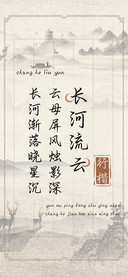 chang he liu yun
长河流云
行楷
云母屏风烛影深
长河渐落晓星沉
yun mu ping feng zhu ying shen
chang he jian luo xiao xing chen